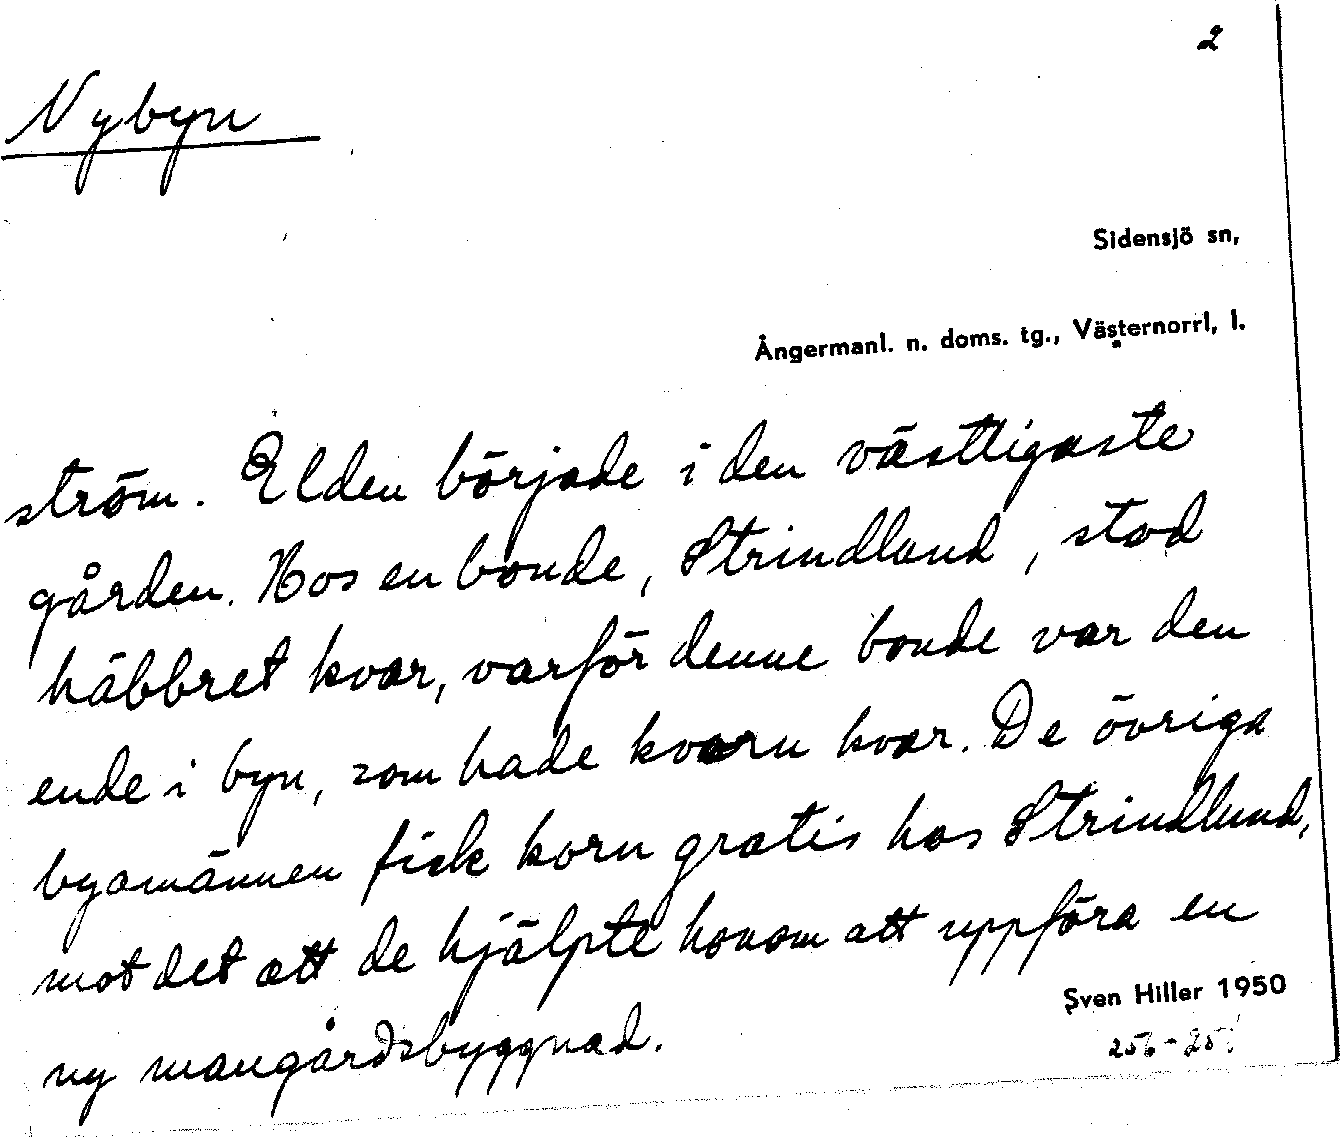 2
Nybyn
Sidensjö sn,
Ångermanl. n. doms. tg., Västernorrl, l.
ström. Elden började i den västligaste
gården. Hos en bonde, Strindlund, stod
häbbret kvar, varför denne bonde var den
ende i byn, som hade kvarn kvar. De övriga
byamännen fick korn gratis hos Strindlund,
mot det att de hjälpte honom att uppföra en
ny mangårdsbyggnad.
Sven Hiller 1950